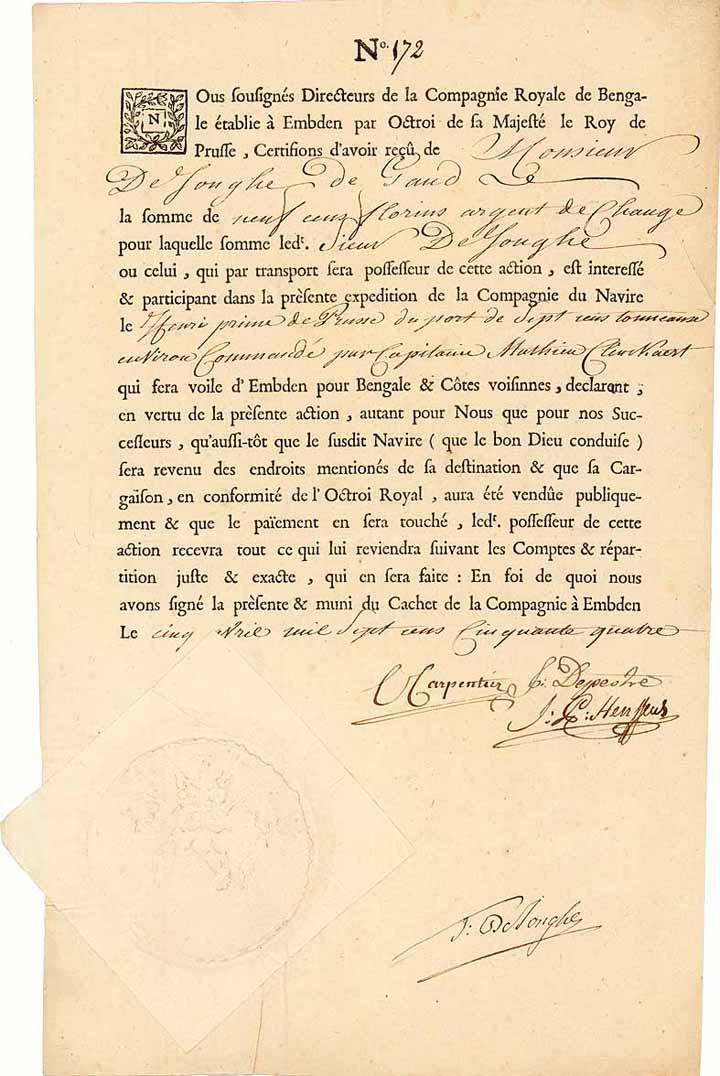 No. 172
NOus souſignés Directeurs de la Compagnie Royale de Benga-
le établie à Embden par Octroi de ſa Majeſté le Roy de
Pruſſe, Certifions d'avoir reçû de Monsieur
De Jonghe de Gand Le
la ſomme de neuf cens florins argent de Change
pour laquelle ſomme ledr. Sieur De Jonghe
ou celui, qui par tranſport ſera poſſeſſeur de cette action, eſt intereſſé
& participant dans la prèſente expedition de la Compagnie du Navire
le Henri prime de Prusse du port de Sept cens tonneaux
environ Commandé par Capitaine Mathieu
qui fera voile d'Embden pour Bengale & Côtes voiſinnes, declarant;
en vertu de la prèſente action, autant pour Nous que pour nos Suc-
ceſſeurs, qu'auſſi-tôt que le ſuſdit Navire ( que le bon Dieu conduiſe )
ſera revenu des endroits mentionés de ſa deſtination & que ſa Car-
gaiſon, en conformité de l'Octroi Royal, aura été vendûe publique-
ment & que le païement en ſera touché, ledr. poſſeſſeur de cette
action recevra tout ce qui lui reviendra ſuivant les Comptes & répar-
tition juſte & exacte, qui en ſera faite : En foi de quoi nous
avons ſigné la prèſente & muni du Cachet de la Compagnie à Embden
Le cinq Avril mil Sept cens Cinquante quatre
Carpentier C: Depestre
J: G: Henſſeus
J: De Jonghe